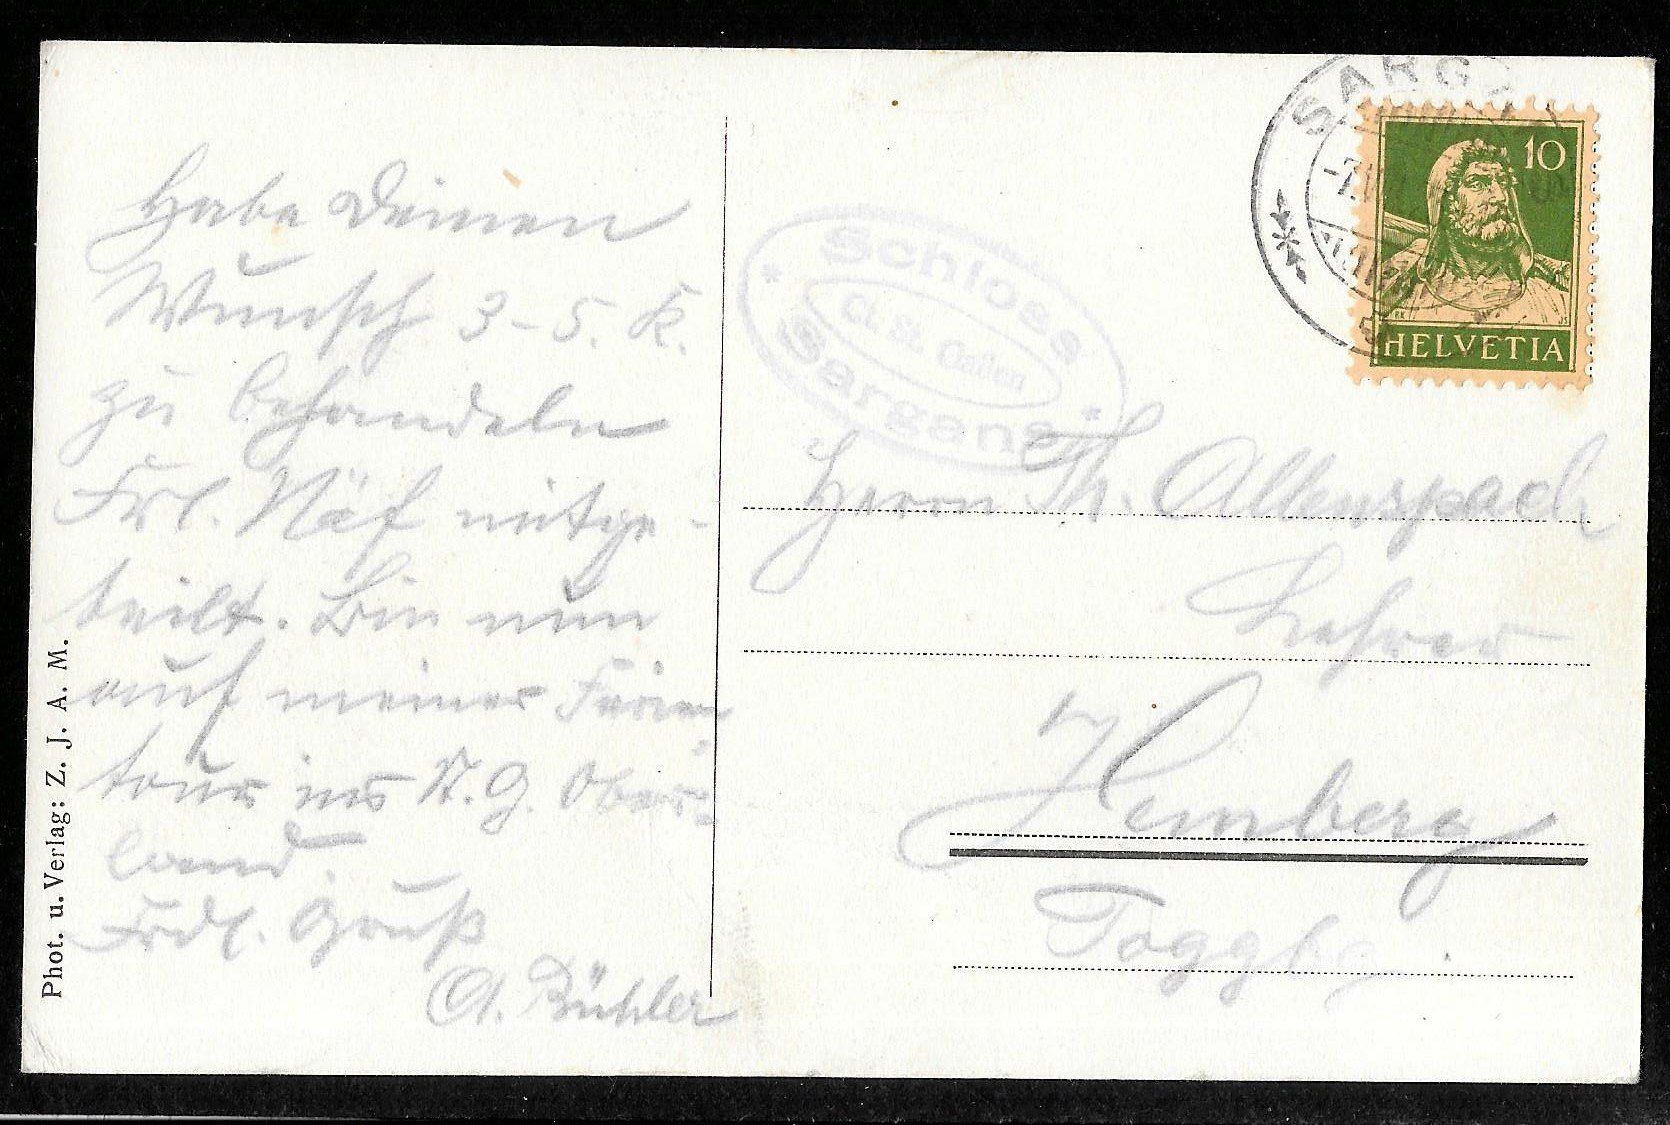 Habe Deinen
Wunsch 3-5. K.
zu behandeln
Frl. Näf mitge-
teilt. Bin nun
auf meiner Ferien-
tour ins St. G. Ober-
land.
Frdl. Gruß
A. Bühler
Phot. u. Verlag: Z. J. A. M.
Schloss
Ct. St. Gallen
Sargans
SARG
10
HELVETIA
Herrn Th. Allenspach
Lehrer
Hemberg
Toggbg.